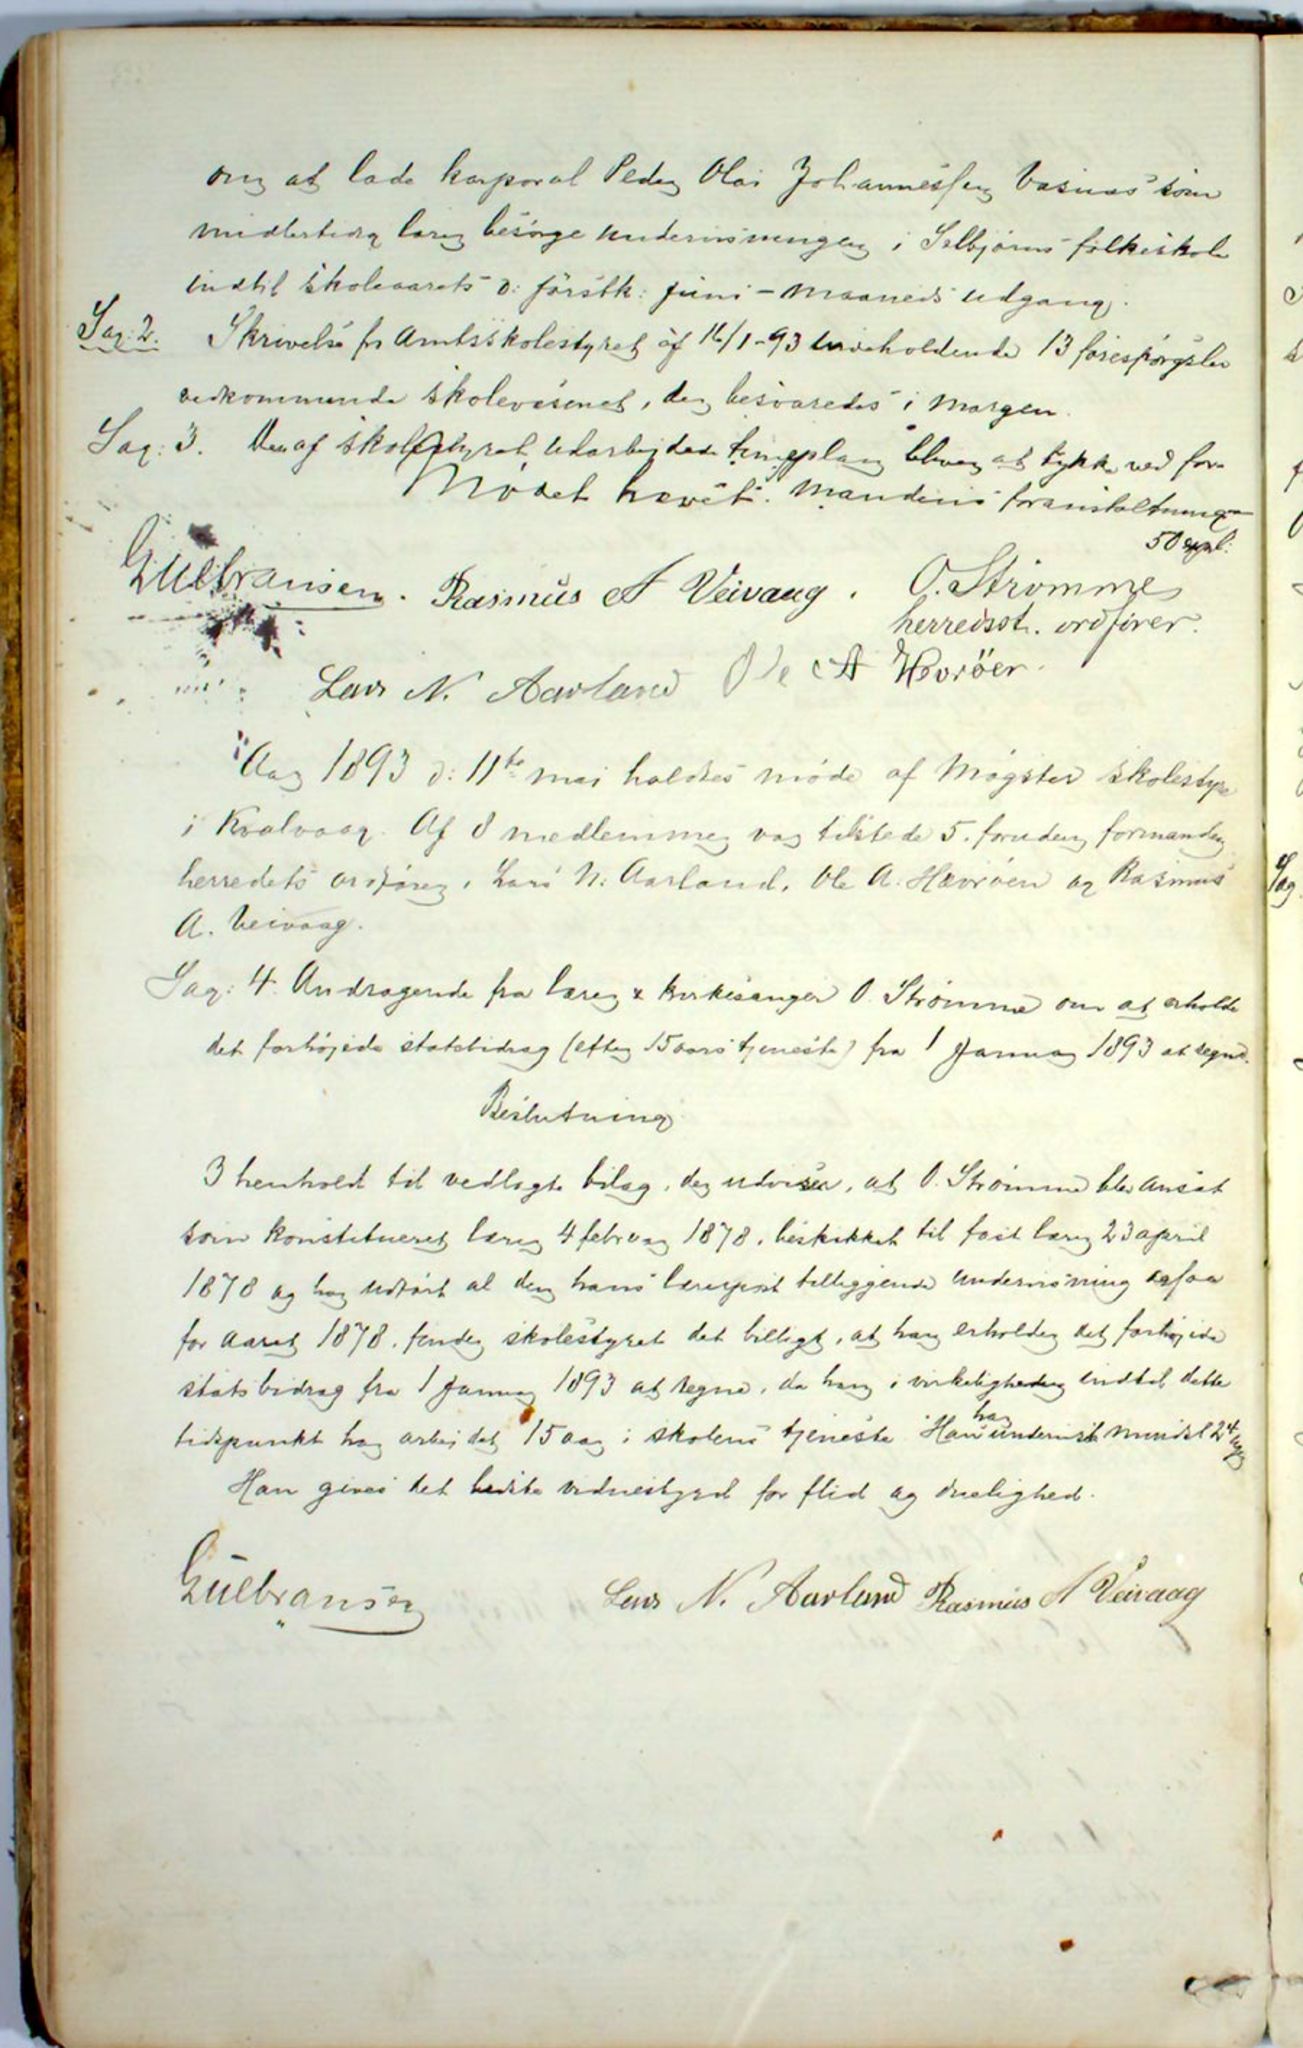 om at lade korporal Peder Olai Johannessen Vasnæs som
midlertidig lærer besørge undervisningen i Selbjørns folkeskole
indtil skoleaarets ɔ: førstk: juni-maaneds udgang.
Sag: 2. Skrivelse fr Amtsskolestyret af 16/1-93 indeholdende 13 forespørgsler
vedkommende skolevæsenet, der besvaredes i margen.
Sag: 3. Den af skolestyret udarbejdede timeplan bliver at trykke ved for-
mandens foranstaltning
50 expl:
Mødet hævet.
Gulbransen. Rasmus A Veivaag. O. Strømme
herredsst. ordfører.
Lars N. Aarland Ole A Hevröer.
Aar 1893 d: 11te mai holdtes møde af Møgster skolestyre
i Kvalvaag. Af 8 medlemmer var tilstede 5. foruden formanden
herredets ordfører, Lars N. Aarland, Ole A. Hævröen og Rasmus
A. Veivaag.
Sag: 4. Andragende fra lærer & kirkesanger O. Strømme om at erholde
det forhøjede statsbidrag (efter 15 aars tjeneste) fra 1 Januar 1893 at regne.
Beslutning
I henhold til vedlagte bilag, der udviser, at O. Strømme blev ansat
som konstitueret lærer 4 februar 1878, beskikket til fast lærer 23 april
1878 og har udført al den hans lærerpost tilliggende undervisning ogsaa
for aaret 1878, finder skolestyret det billigt, at han erholder det forhøjede
statsbidrag fra 1 Januar 1893 at regne, da han i virkeligheden indtil dette
tidspunkt har arbejdet 15 aar i skolens tjeneste. Han har undervist mindst 24 uger
Han gives det bedste vidnesbyrd for flid og duelighed.
Gulbransen Lars N. Aarland Rasmus A Veivaag
Sag